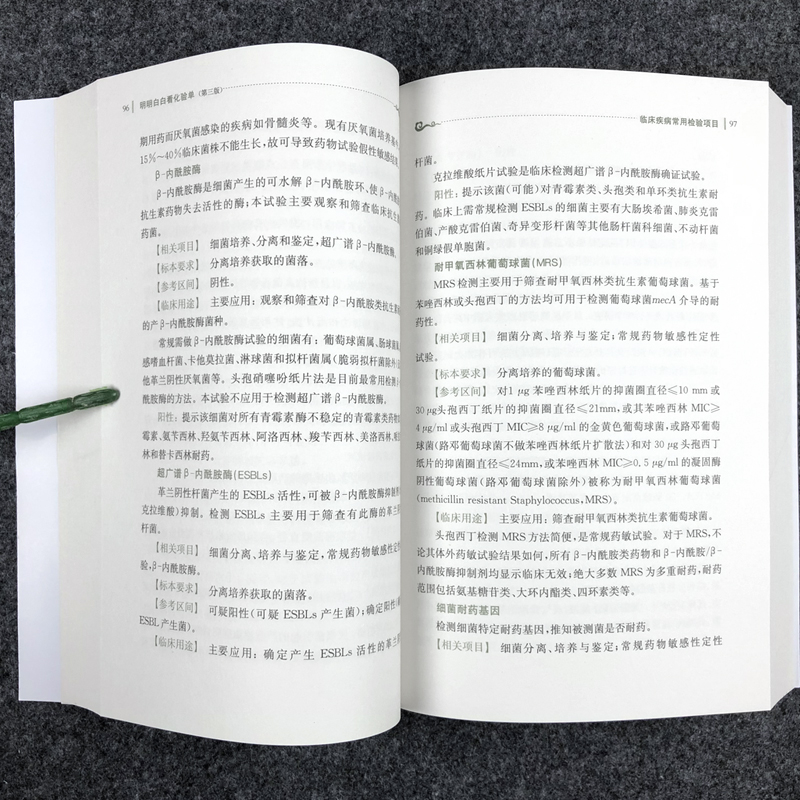 96 明明白白看化验单（第三版）
期用药而厌氧菌感染的疾病如骨髓炎等。现有厌氧菌培养基
15%～40%临床菌株不能生长，故可导致药物试验假性敏感
β-内酰胺酶
β-内酰胺酶是细菌产生的可水解β-内酰胺环，使β-内酰
抗生素药物失去活性的酶；本试验主要观察和筛查临床抗生
药菌。
【相关项目】 细菌培养、分离和鉴定，超广谱β-内酰胺酶。
【标本要求】 分离培养获取的菌落。
【参考区间】 阴性。
【临床用途】 主要应用：观察和筛查对β-内酰胺类抗生素
的产β-内酰胺酶菌种。
常规需做β-内酰胺酶试验的细菌有：葡萄球菌属、肠球菌属、
感嗜血杆菌、卡他莫拉菌、淋球菌和拟杆菌属（脆弱拟杆菌除外）
他革兰阴性厌氧菌等。头孢硝噻吩纸片法是目前最常用检测
酰胺酶的方法。本试验不应用于检测超广谱β-内酰胺酶。
阳性：提示该细菌对所有青霉素酶不稳定的青霉素类药物
霉素、氨苄西林、羟氨苄西林、阿洛西林、羧苄西林、美洛西林、
林和替卡西林耐药。
超广谱β-内酰胺酶(ESBLs)
革兰阴性杆菌产生的 ESBLs 活性，可被β-内酰胺酶抑制
克拉维酸）抑制。检测 ESBLs 主要用于筛查有此酶的革兰
杆菌。
【相关项目】 细菌分离、培养与鉴定，常规药物敏感性定性
验，β-内酰胺酶。
【标本要求】 分离培养获取的菌落。
【参考区间】 可疑阳性（可疑 ESBLs 产生菌）；确定阳性
ESBL 产生菌）。
【临床用途】 主要应用：确定产生 ESBLs 活性的革兰
临床疾病常用检验项目 97
杆菌。
克拉维酸纸片试验是临床检测超广谱β-内酰胺酶确证试验。
阳性：提示该菌（可能）对青霉素类、头孢类和单环类抗生素耐
药。临床上需常规检测 ESBLs 的细菌主要有大肠埃希菌、肺炎克雷
伯菌、产酸克雷伯菌、奇异变形杆菌等其他肠杆菌科细菌、不动杆菌
和铜绿假单胞菌。
耐甲氧西林葡萄球菌(MRS)
MRS 检测主要用于筛查耐甲氧西林类抗生素葡萄球菌。基于
苯唑西林或头孢西丁的方法均可用于检测葡萄球菌mecA 介导的耐
药性。
【相关项目】 细菌分离、培养与鉴定；常规药物敏感性定性
试验。
【标本要求】 分离培养的葡萄球菌。
【参考区间】 对1 μg 苯唑西林纸片的抑菌圈直径≤10 mm 或
30 μg头孢西丁纸片的抑菌圈直径≤21mm，或其苯唑西林 MIC≥
4 μg/ml 或头孢西丁 MIC≥8 μg/ml 的金黄色葡萄球菌，或路邓葡萄
球菌（路邓葡萄球菌不做苯唑西林纸片扩散法）和对 30 μg 头孢西丁
纸片的抑菌圈直径≤24mm，或苯唑西林 MIC≥0.5 μg/ml 的凝固酶
阴性葡萄球菌（路邓葡萄球菌除外）被称为耐甲氧西林葡萄球菌
(methicillin resistant Staphylococcus，MRS)。
【临床用途】 主要应用：筛查耐甲氧西林类抗生素葡萄球菌。
头孢西丁检测 MRS 方法简便，是常规药敏试验。对于 MRS，不
论其体外药敏试验结果如何，所有β-内酰胺类药物和β-内酰胺/β-
内酰胺酶抑制剂均显示临床无效；绝大多数 MRS 为多重耐药，耐药
范围包括氨基糖苷类、大环内酯类、四环素类等。
细菌耐药基因
检测细菌特定耐药基因，推知被测菌是否耐药。
【相关项目】 细菌分离、培养与鉴定；常规药物敏感性定性